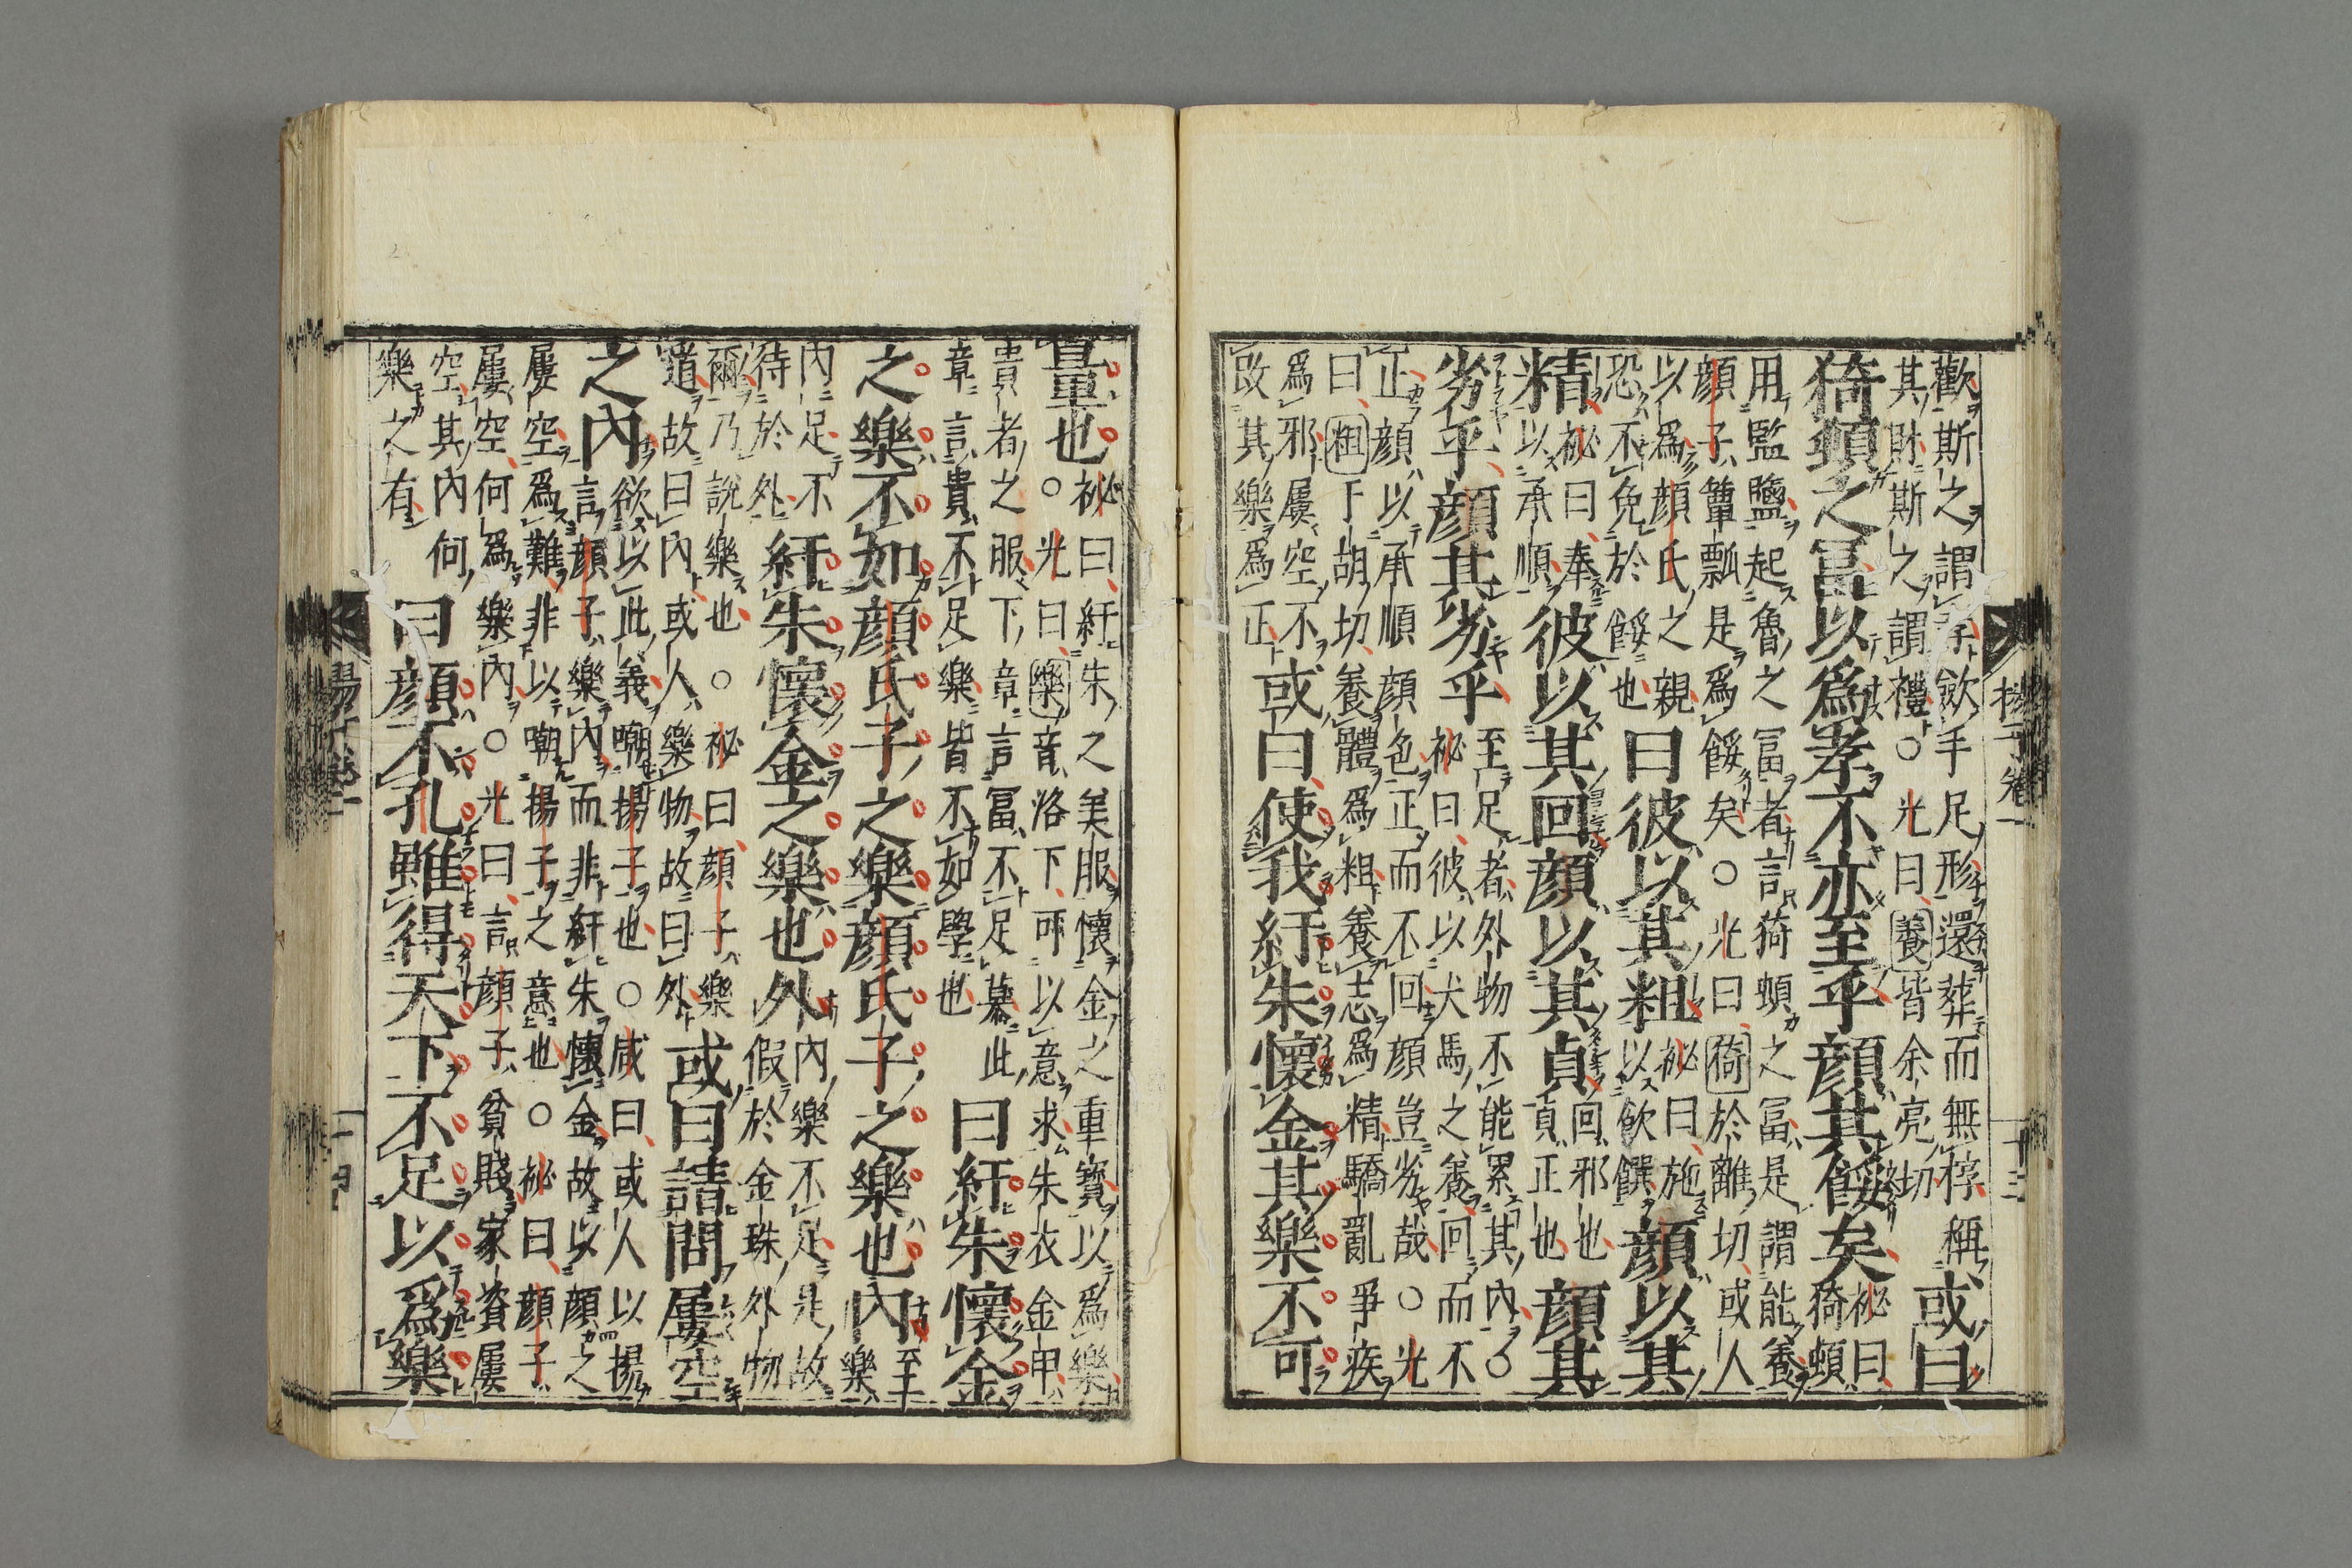 歡斯之謂孝斂手足形還葬而無椁稱
其財斯之謂禮○光曰養皆余亮切
或曰
猗頓之冨以爲孝不亦至乎顏其餒矣
祕曰
猗頓
用監鹽起魯之冨者言猗頓之冨是謂能養
顏子簞瓢是爲餒矣○光曰猗於離切或人
以爲顏氏之親
恐不免於餒也
曰彼以其粗
祕曰施
以飲饌
顏以其
精
祕曰奉
以承順
彼以其回顏以其貞
回邪也
貞正也
顏其
劣乎顏其劣乎
至足者外物不能累其內○
祕曰彼以犬馬之養回而不
正顏以承順顏色正而不回顏豈劣哉○光
曰粗千胡切養體爲粗養志爲精驕亂爭疾
爲邪屢空不
改其樂爲正
或曰使我紆朱懷金其樂不可
揚子卷一
十三
量也
祕曰紆朱之美服懷金之重寶以爲樂
○光曰樂音洛下可以意求朱衣金甲
貴者之服下章言冨不足慕此
章言貴不足樂皆不如學也
曰紆朱懷金
之樂不如顏氏子之樂顏氏子之樂也內
至
樂
內足不
待於外
紆朱懷金之樂也外
內樂不足是故
假於金珠外物
爾乃說樂也○祕曰顏子樂
道故曰內或人樂物故曰外
或曰請問屢空
之內
欲以此義嘲揚子也○咸曰或人以揚
言顏子樂內而非紆朱懷金故以顏之
屢空爲難非以嘲揚子之意也○祕曰顏子
屢空何爲樂內○光曰言顏子貧賤家資屢
空其內何
樂之有
曰顏不孔雖得天下不足以爲樂
揚子卷一
十四